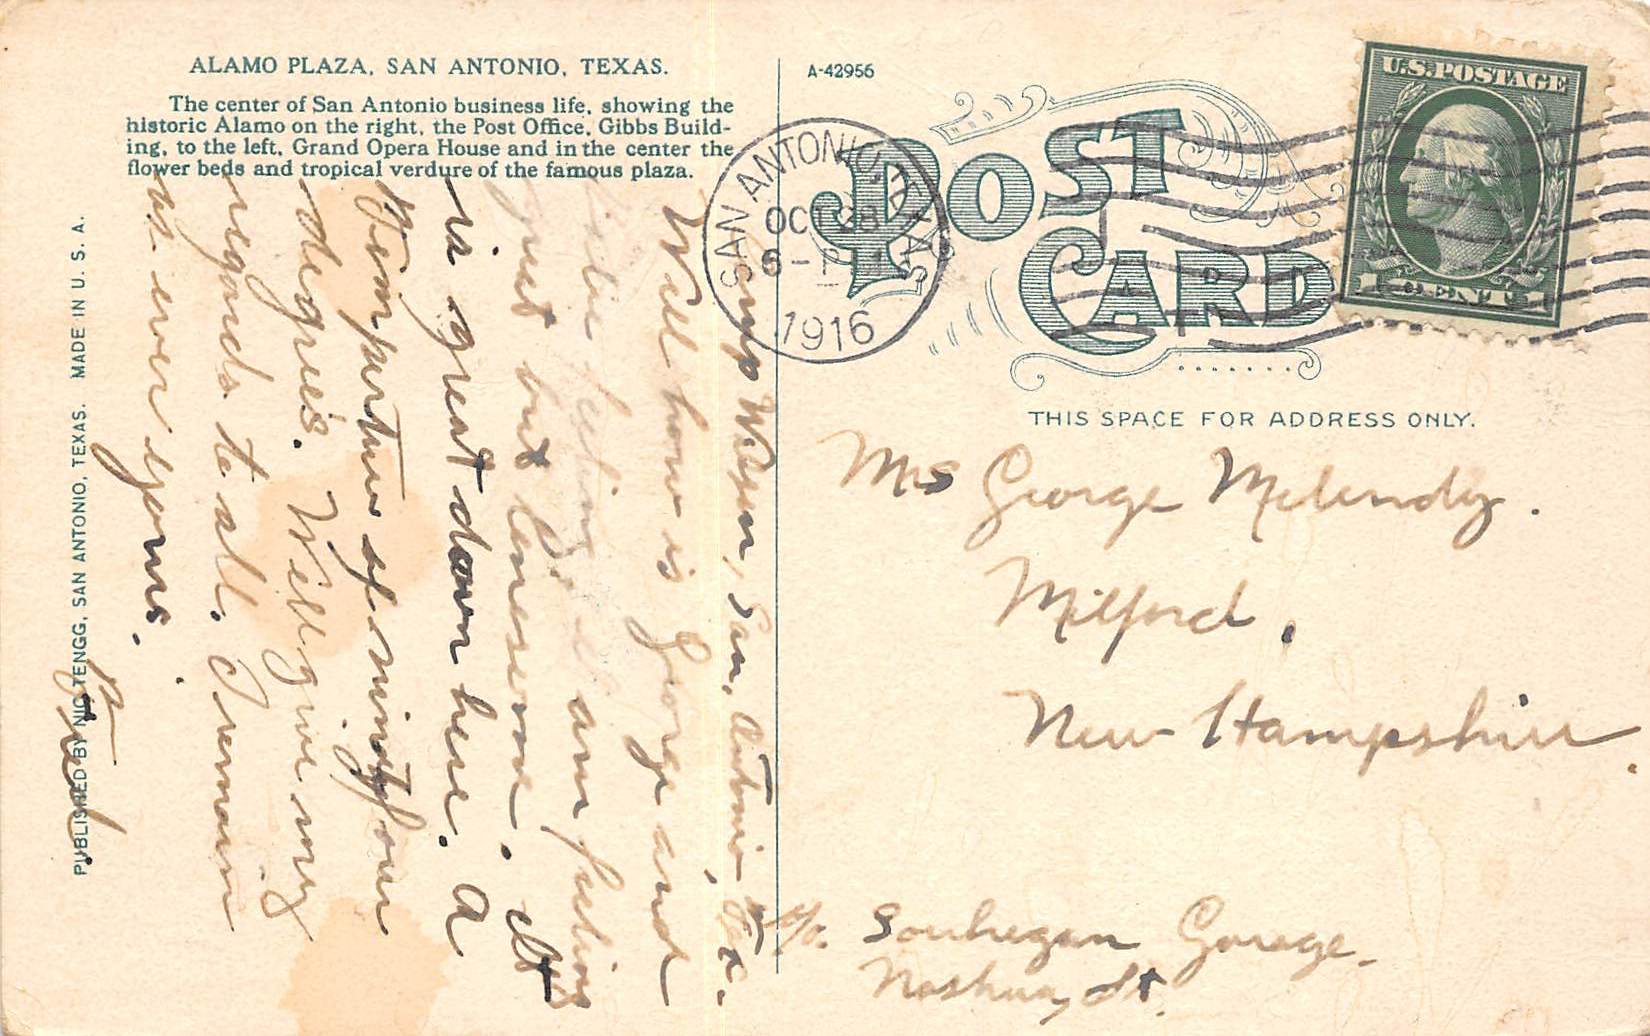 ALAMO PLAZA, SAN ANTONIO, TEXAS.
The center of San Antonio business life, showing the
historic Alamo on the right, the Post Office, Gibbs Build-
ing, to the left, Grand Opera House and in the center the
flower beds and tropical verdure of the famous plaza.
A-42956
POST
CARD
U.S. POSTAGE
1 CENT 1
SAN ANTONIO, TEXAS
OCT 28
6-
1916
THIS SPACE FOR ADDRESS ONLY.
Mrs George Melendy.
Milford,
New Hampshire.
c/o. Souhegan Garage.
Nashua, St.
Camp Wilson, San. Antonio Tex.
Well how is George and
am feeling
great but lonesome. It
is great down here. A
Temperture of ninty four
degrees. Well give my
regards to all. I remain
as ever yours.
Fred.
PUBLISHED BY NIC TENGG, SAN ANTONIO, TEXAS. MADE IN U. S. A.